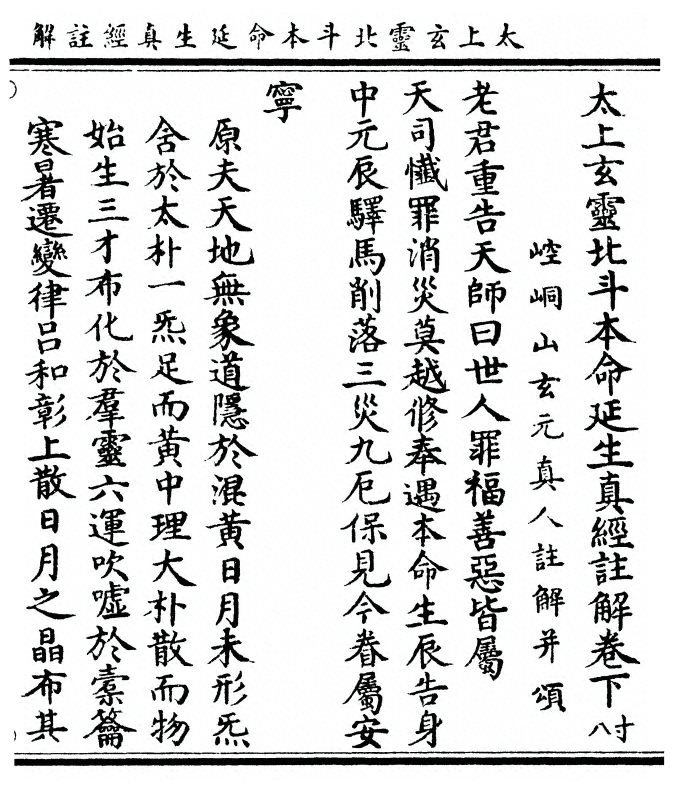 太上玄靈北斗本命延生真經註解
太上玄靈北斗本命延生真經註解卷下 寸八
崆峒山玄元真人註解并頌
老君重告天師曰世人罪福善惡皆屬
天司懺罪消災莫越修奉遇本命生辰告身
中元辰驛馬削落三災九厄保見今眷屬安
寧
原夫天地無象道隱於混黃日月未形炁
含於太朴一炁足而黃中理大朴散而物
始生三才布化於羣靈六運吹噓於橐籥
寒暑遷變律呂和彰上散日月之晶布其